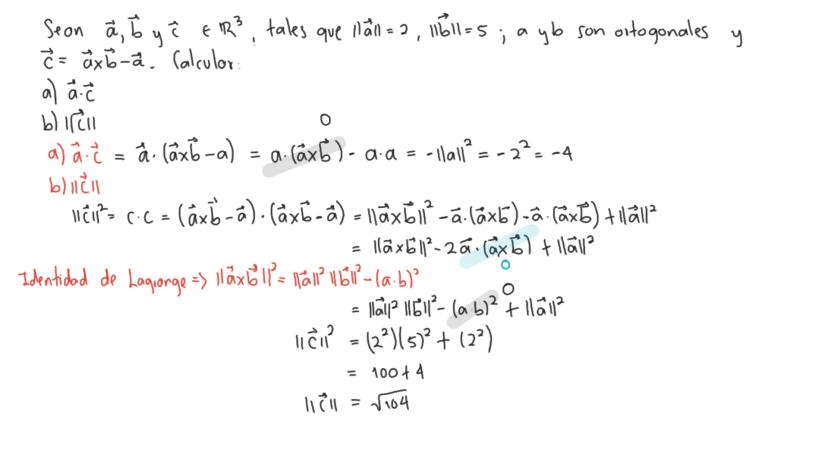 Sean a⃗, b⃗ y c⃗ ∈ ℝ³, tales que ||a⃗|| = 2, ||b⃗|| = 5 ; a y b son ortogonales y
c⃗ = a⃗xb⃗ - a⃗. Calcular:
a) a⃗·c⃗
b) ||c⃗||
0
a) a⃗·c⃗ = a⃗·(a⃗xb⃗-a) = a·(a⃗xb⃗) - a·a = -||a||² = -2² = -4
b) ||c⃗||
||c⃗||² = c·c = (a⃗xb⃗-a⃗)·(a⃗xb⃗-a⃗) = ||a⃗xb⃗||² - a⃗·(a⃗xb⃗) - a⃗·(a⃗xb⃗) + ||a⃗||²
= ||a⃗xb⃗||² - 2a⃗·(a⃗xb⃗) + ||a⃗||²
0
Identidad de Lagrange => ||a⃗xb⃗||² = ||a⃗||² ||b⃗||² - (a·b)²
0
= ||a⃗||² ||b⃗||² - (a·b)² + ||a⃗||²
||c⃗||² = (2²)(5)² + (2²)
= 100+4
||c⃗|| = √104